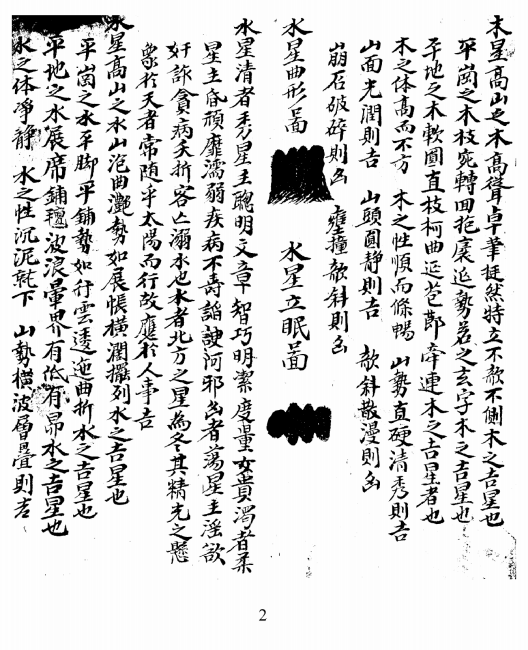 木星高山之木高聳卓筆挺然特立不欹不側木之吉星也
平崗之木枝宛轉回抱裹迤勢若之玄字木之吉星也
平地之木軟圓直枝柯曲迤苞節牽連木之吉星者也
木之体高而不方 木之性順而條暢 山勢直硬清秀則吉
山面光潤則吉 山頭圓静則吉 欹斜散漫則凶
崩石破碎則凶 擁撞欹斜則凶
水星曲形圖 水星立眠圖
水星清者秀星主聰明文章智巧明潔度量女貴濁者柔
星主昏頑靡濡弱疾病不壽諂諛阿邪凶者蕩星主淫欲
奸詐貪病夭折客亡溺水也水者北方之星為冬其精光之懸
象於天者常随乎太陽而行故應於人事吉
水星高山之水山泡曲灧勢如展帳橫濶擺列水之吉星也
平崗之水平脚平鋪勢如行雲逶迤曲折水之吉星也
平地之水展席鋪氊波浪暈界有低有昂水之吉星也
水之体淨静 水之性沉泥就下 山勢橫波層疊則吉
2